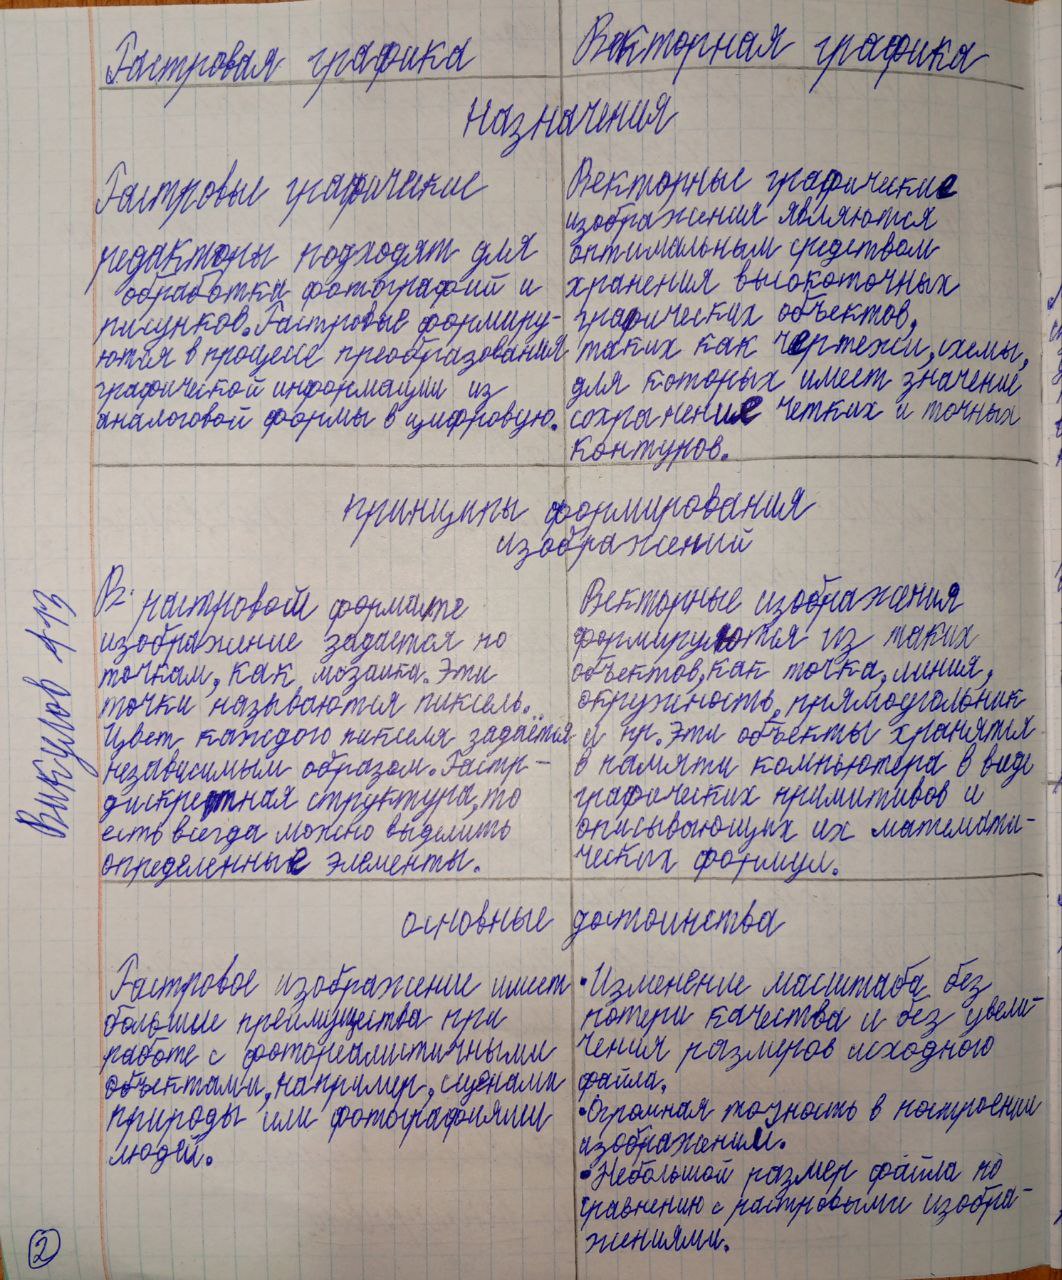 Растровая графика
Векторная графика
Назначения
Растровые графические
редакторы подходят для
обработка фотографий и
рисунков. Растровые формиру-
ются в процессе преобразования
графической информации из
аналоговой формы в цифровую.
Векторные графические
изображения являются
оптимальным средством
хранения высокоточных
графических объектов,
таких как чертежи, схемы,
для которых имеет значение
сохранение четких и точных
контуров.
принципы формирования
изображений
В растровом формате
изображение задается по
точкам, как мозаика. Эти
точки называются пиксель.
Цвет каждого пикселя задаётся
независимым образом. Растр -
дискретная структура, то
есть всегда можно выделить
определенные элементы.
Векторные изображения
формируются из таких
объектов, как точка, линия,
окружность, прямоугольник
и пр. Эти объекты хранятся
в памяти компьютера в виде
графических примитивов и
описывающих их математи-
ческих формул.
основные достоинства
Растровое изображение имеет
большие преимущества при
работе с фотореалистичными
объектами, например, сценами
природы или фотографиями
людей.
• Изменение масштаба без
потери качества и без увели-
чения размеров исходного
файла.
• Огромная точность в построении
изображении.
• Небольшой размер файла по
сравнению с растровыми изобра-
жениями.
Викулов 113
2